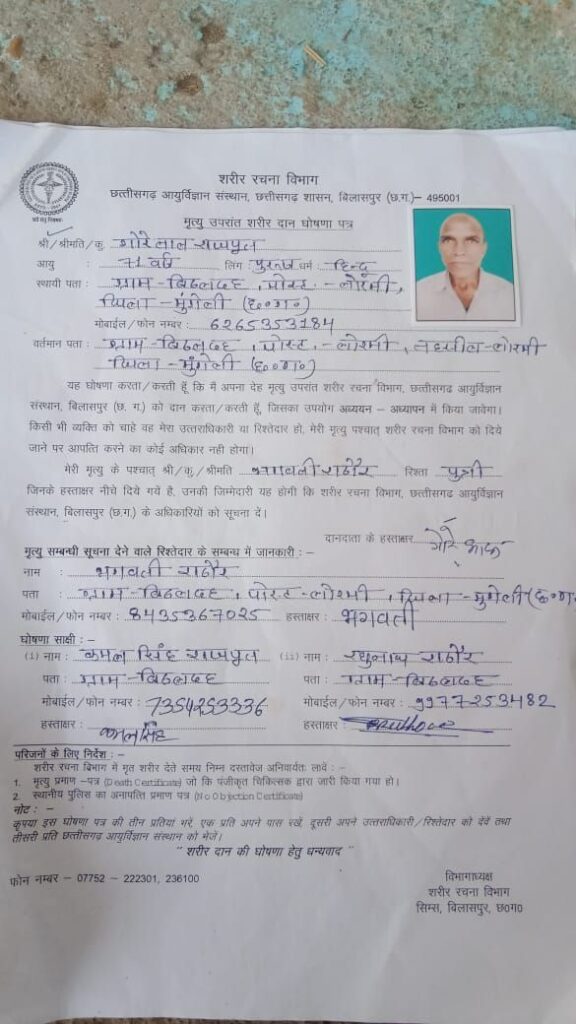 शरीर रचना विभाग
छत्तीसगढ़ आयुर्विज्ञान संस्थान, छत्तीसगढ़ शासन, बिलासपुर (छ.ग.)– 495001
मृत्यु उपरांत शरीर दान घोषणा पत्र
श्री/श्रीमति/कु. गोरेलाल राजपूत
आयु : 71 वर्ष लिंग : पुरूष धर्म : हिन्दू
स्थायी पता : ग्राम-बिठलदह, पोस्ट-लोरमी,
जिला-मुंगेली (छ०ग०)
मोबाईल/फोन नम्बर : 6265353184
वर्तमान पता : ग्राम-बिठलदह, पोस्ट-लोरमी, तहसील-लोरमी
जिला-मुंगेली (छ०ग०)
यह घोषणा करता/करती हूँ कि मैं अपना देह मृत्यु उपरांत शरीर रचना विभाग, छत्तीसगढ़ आयुर्विज्ञान
संस्थान, बिलासपुर (छ. ग.) को दान करता/करती हूँ, जिसका उपयोग अध्ययन – अध्यापन में किया जावेगा।
किसी भी व्यक्ति को चाहे वह मेरा उत्तराधिकारी या रिश्तेदार हो, मेरी मृत्यु पश्चात् शरीर रचना विभाग को दिये
जाने पर आपत्ति करने का कोई अधिकार नही होगा।
मेरी मृत्यु के पश्चात् श्री/कु./श्रीमति भगवती राठौर रिश्ता पुत्री
जिनके हस्ताक्षर नीचे दिये गये है, उनकी जिम्मेदारी यह होगी कि शरीर रचना विभाग, छत्तीसगढ़ आयुर्विज्ञान
संस्थान, बिलासपुर (छ.ग.) के अधिकारियों को सूचना दें।
दानदाता के हस्ताक्षर
मृत्यु सम्बन्धी सूचना देने वाले रिश्तेदार के सम्बन्ध में जानकारी : –
नाम : भगवती राठौर
पता : ग्राम-बिठलदह, पोस्ट-लोरमी, जिला-मुंगेली (छ०ग०
मोबाईल/फोन नम्बर : 8435367025 हस्ताक्षर : भगवती
घोषणा साक्षी : –
(i) नाम : कमल सिंह राजपूत (ii) नाम : रघुनाथ राठौर
पता : ग्राम-बिठलदह पता : ग्राम-बिठलदह
मोबाईल/फोन नम्बर : 7354253336 मोबाईल/फोन नम्बर : 9977253482
हस्ताक्षर : कमलसिंह हस्ताक्षर :
परिजनों के लिए निर्देश : –
शरीर रचना विभाग में मृत शरीर देते समय निम्न दस्तावेज अनिवार्यतः लावे : –
1. मृत्यु प्रमाण –पत्र (Death Certificate) जो कि पंजीकृत चिकित्सक द्वारा जारी किया गया हो।
2. स्थानीय पुलिस का अनापत्ति प्रमाण पत्र (No Objection Certificate)
नोट : –
कृपया इस घोषणा पत्र की तीन प्रतिया भरें, एक प्रति अपने पास रखें, दूसरी अपने उत्तराधिकारी/रिश्तेदार को देवें तथा
तीसरी प्रति छत्तीसगढ़ आयुर्विज्ञान संस्थान को भेजें।
" शरीर दान की घोषणा हेतु धन्यवाद "
फोन नम्बर – 07752 – 222301, 236100
विभागाध्यक्ष
शरीर रचना विभाग
सिम्स, बिलासपुर, छ०ग०